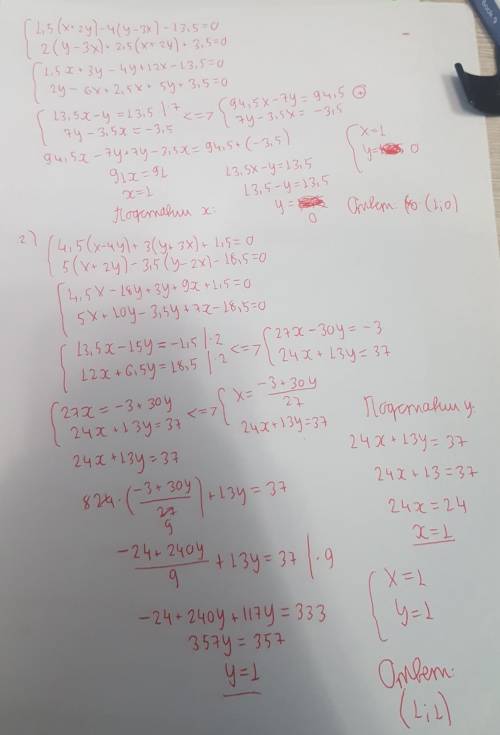 {1,5(x+2y)-4(y-3x)-13,5=0
2(y-3x)+2,5(x+2y)+3,5=0
{1,5x+3y-4y+12x-13,5=0
2y-6x+2,5x+5y+3,5=0
{13,5x-y=13,5 |·7 <=> {94,5x-7y=94,5 ⊕
7y-3,5x=-3,5 7y-3,5x=-3,5
94,5x-7y+7y-3,5x=94,5+(-3,5)
91x=91 13,5x-y=13,5 {x=1
x=1 13,5-y=13,5 y= 0
Подставим x: y= 0 Ответ: (1;0)
2) {4,5(x-4y)+3(y+3x)+1,5=0
5(x+2y)-3,5(y-2x)-18,5=0
{4,5x-18y+3y+9x+1,5=0
5x+10y-3,5y+7x-18,5=0
{13,5x-15y=-1,5 |·2 <=> {27x-30y=-3
12x+6,5y=18,5 |·2 24x+13y=37
{27x=-3+30y <=> {x=\frac{-3+30y}{27}
24x+13y=37 24x+13y=37
24x+13y=37
8 24·(\frac{-3+30y}{27 9})+13y=37
\frac{-24+240y}{9}+13y=37 |·9
-24+240y+117y=333
357y=357
y=1
Подставим y:
24x+13y=37
24x+13=37
24x=24
x=1
{x=1
y=1
Ответ:
(1;1)